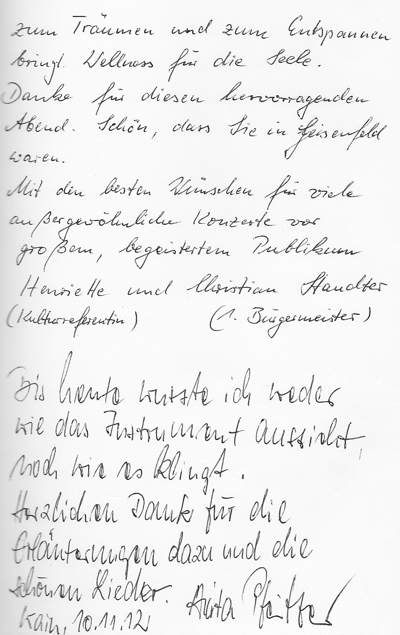 zum Träumen und zum Entspannen
bringt. Wellness für die Seele.
Danke für diesen hervorragenden
Abend. Schön, dass Sie in Geisenfeld
waren.
Mit den besten Wünschen für viele
außergewöhnliche Konzerte vor
großem, begeistertem Publikum
Henriette und Christian Staudter
(Kulturreferentin) (1. Bürgermeister)
Bis heute wusste ich weder
wie das Instrument aussieht,
noch wie es klingt.
Herzlichen Dank für die
Erläuterungen dazu und die
schönen Lieder. Anita Pfeiffer
10.11.12